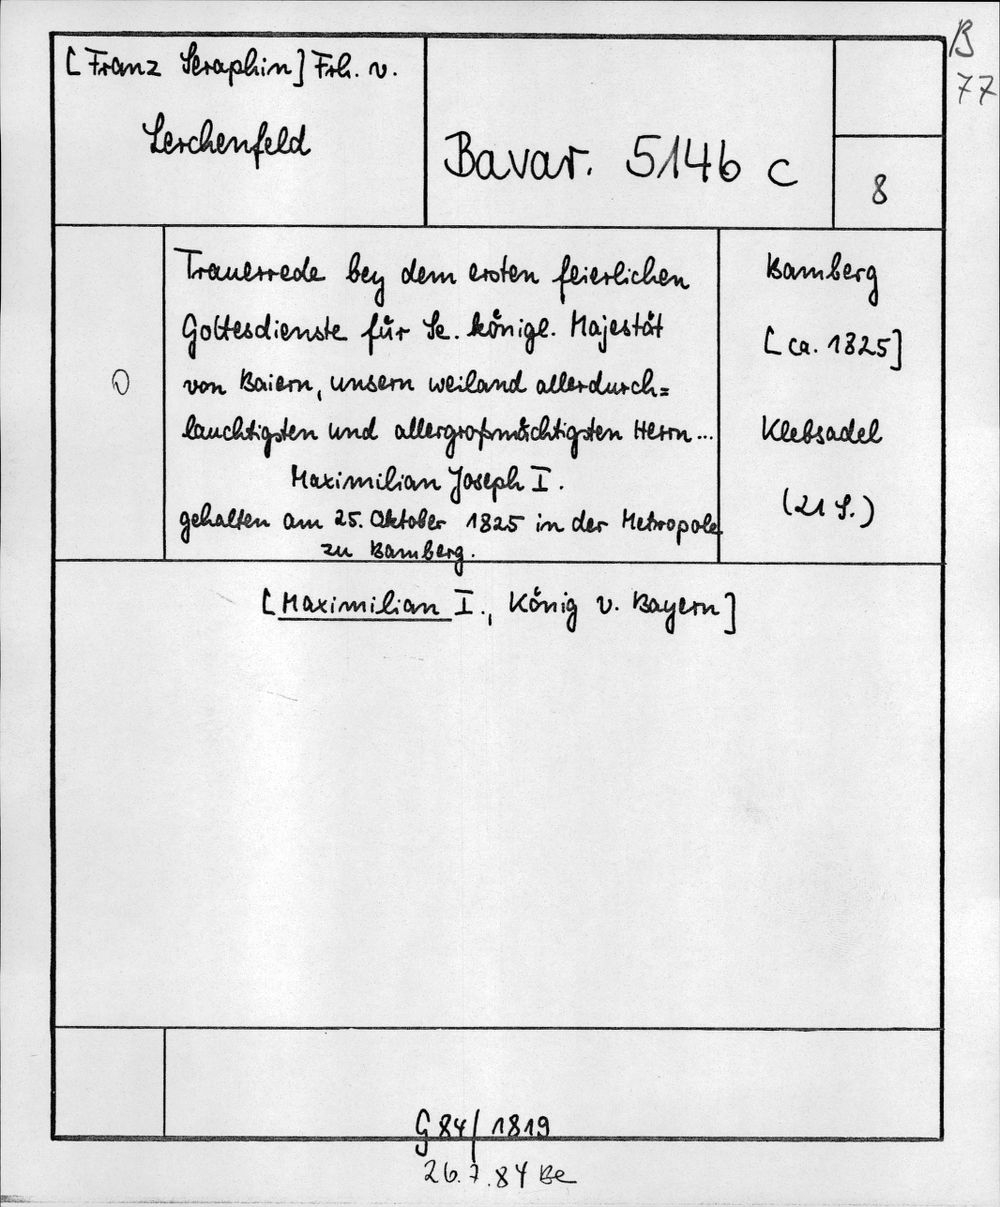 B
77
[Franz Seraphin] Frh. v.
Lerchenfeld
Bavar. 5146 c
8
Trauerrede bey dem ersten feierlichen
Gottesdienste für Se. königl. Majestät
von Baiern, unsern weiland allerdurch=
lauchtigsten und allergroßmächtigsten Herrn...
Maximilian Joseph I.
gehalten am 25. Oktober 1825 in der Metropole
zu Bamberg.
Bamberg
[ca. 1825]
Klebsadel
(21 S.)
[Maximilian I., König v. Bayern]
G 84/1819
26.7.84 Be